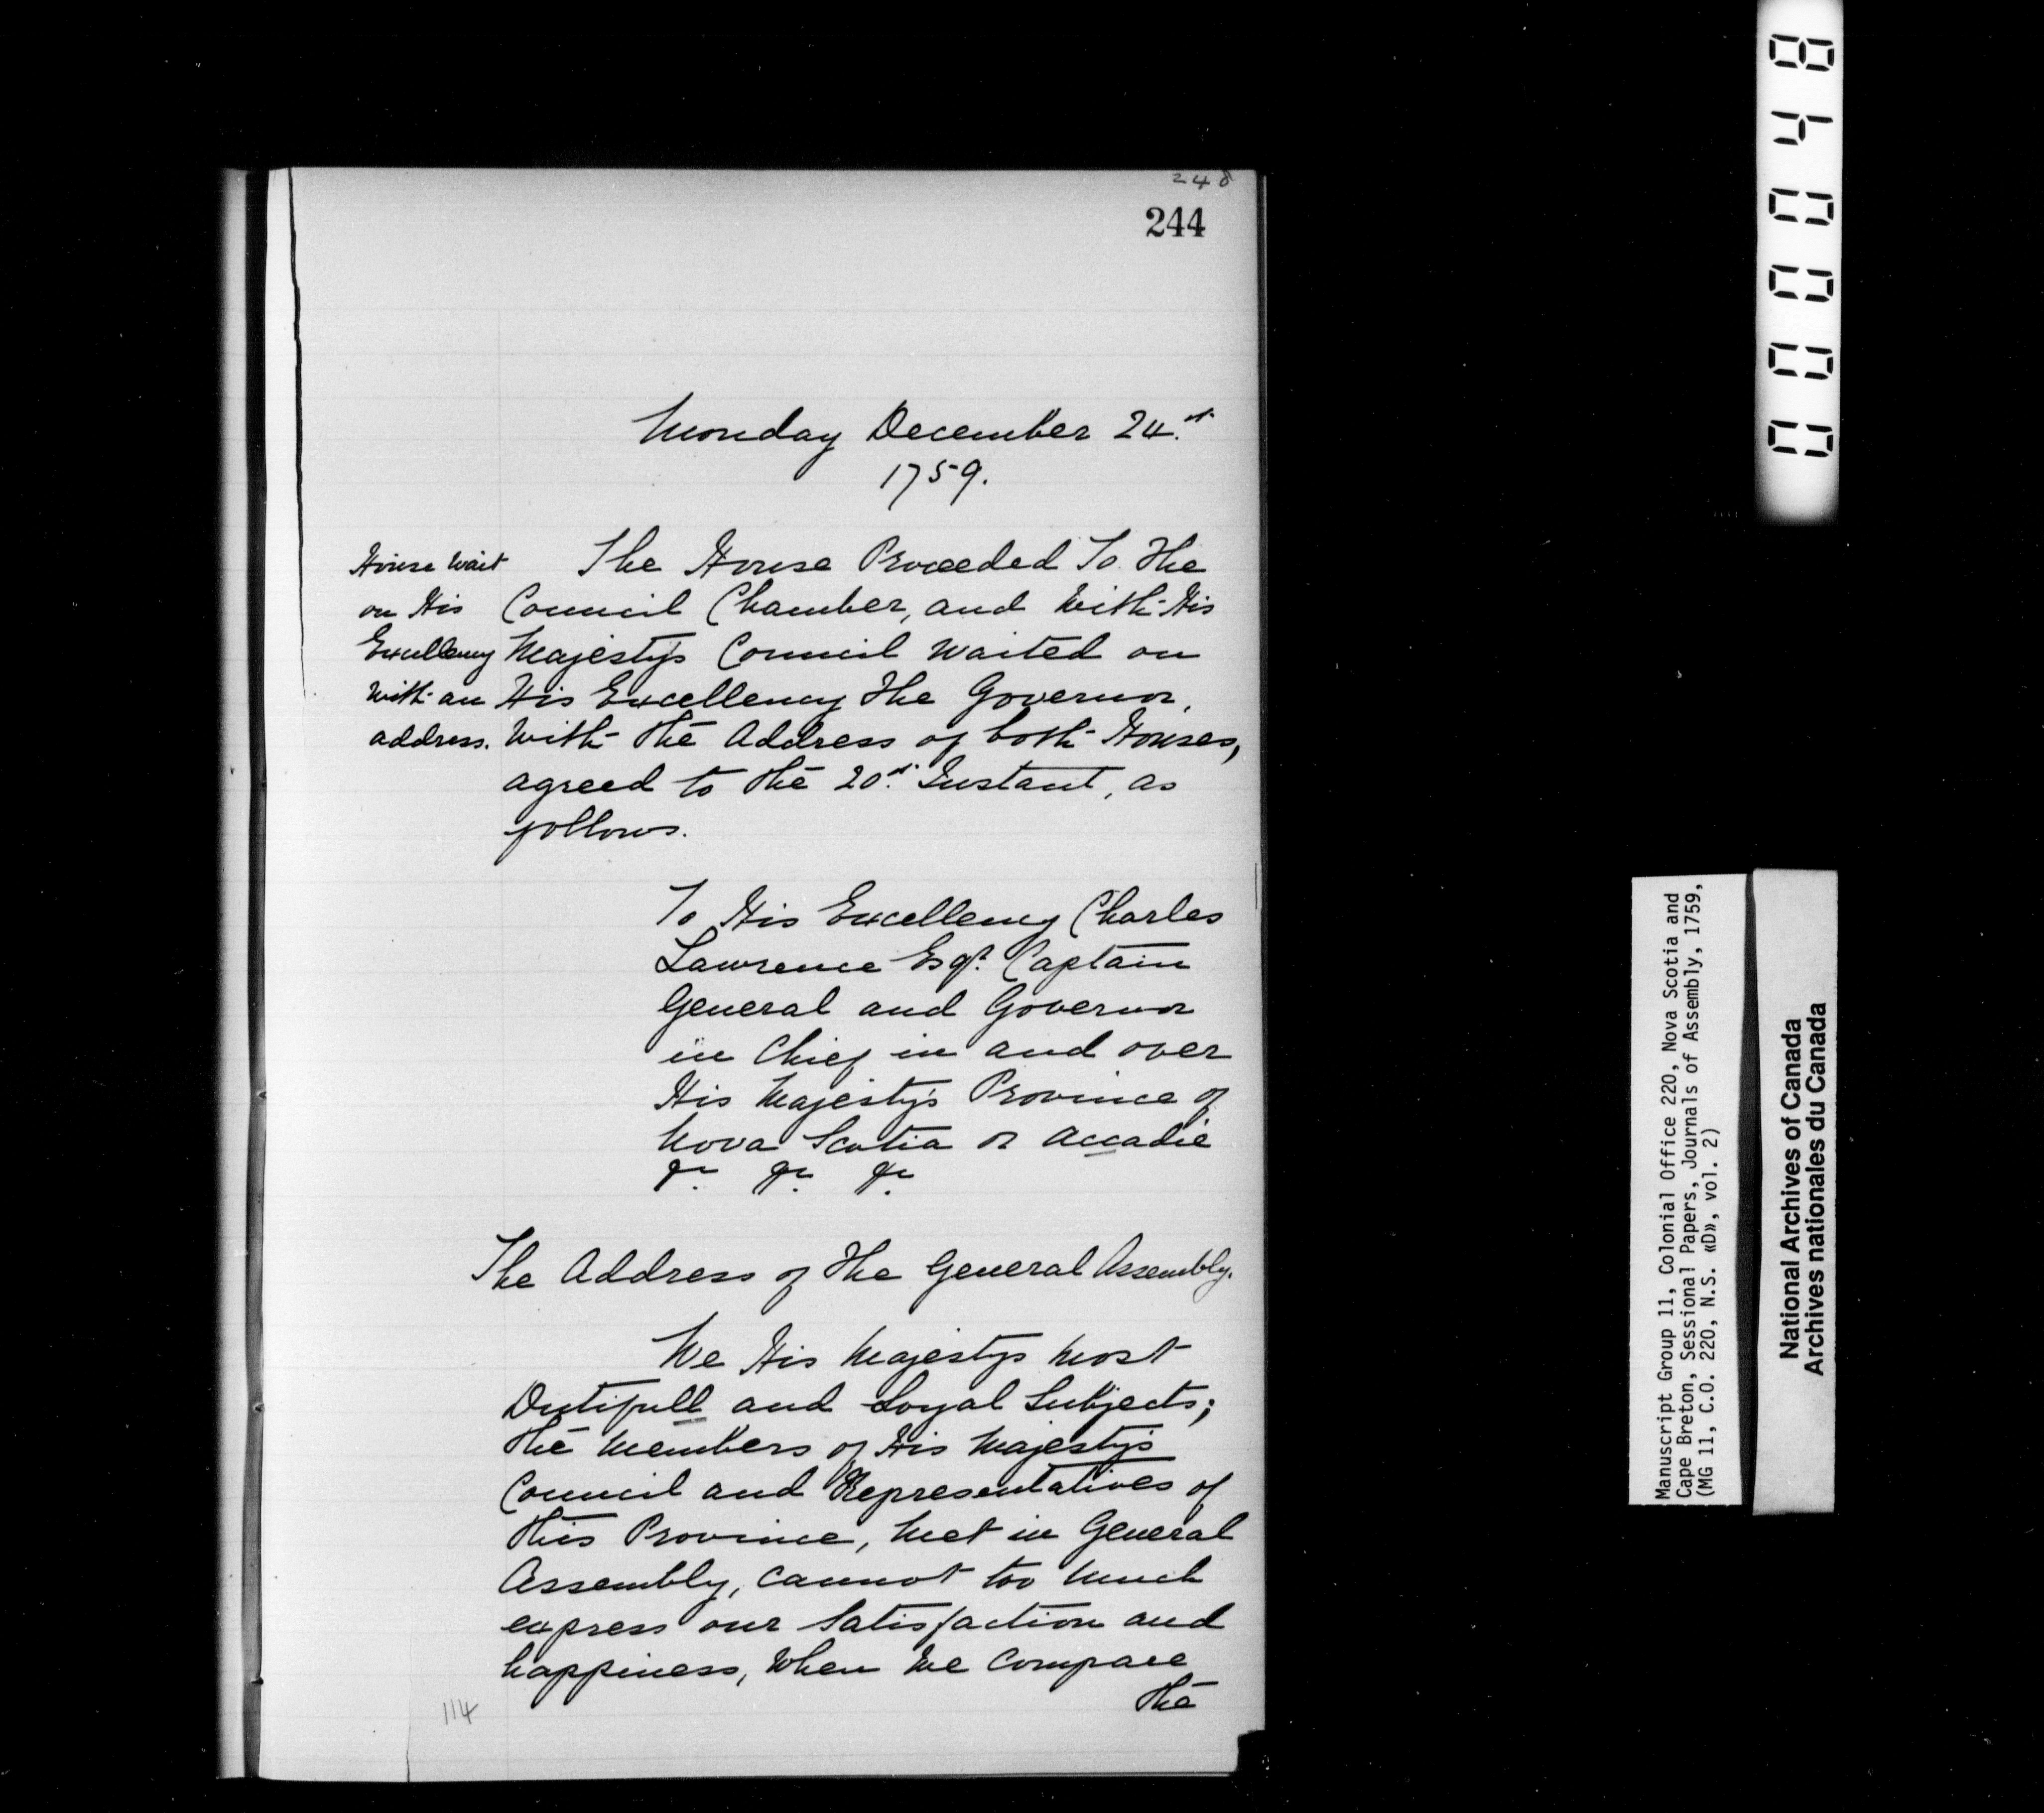 248
244
Monday December 24.th
1759.
House wait
on His
Excellency
with an
address.
The House Proceeded To The
Council Chamber, and With His
Majesty's Council waited on
His Excellency The Governor,
With the Address of both Houses,
agreed to the 20.th Instant, as
follows.
To His Excellency Charles
Lawrence Esqr. Captain
General and Governor
in Chief in and over
His Majesty's Province of
Nova Scotia or Accadie
&c. &c. &c.
The Address of The General Assembly.
We His Majestys most
Dutifull and Loyal Subjects;
the Members of His Majesty's
Council and Representatives of
this Province, met in General
Assembly, cannot too much
express our Satisfaction and
happiness, When We Compare
the
114
000048
Manuscript Group 11, Colonial Office 220, Nova Scotia and
Cape Breton, Sessional Papers, Journals of Assembly, 1759,
(MG 11, C.O. 220, N.S. «D», vol. 2)
National Archives of Canada
Archives nationales du Canada